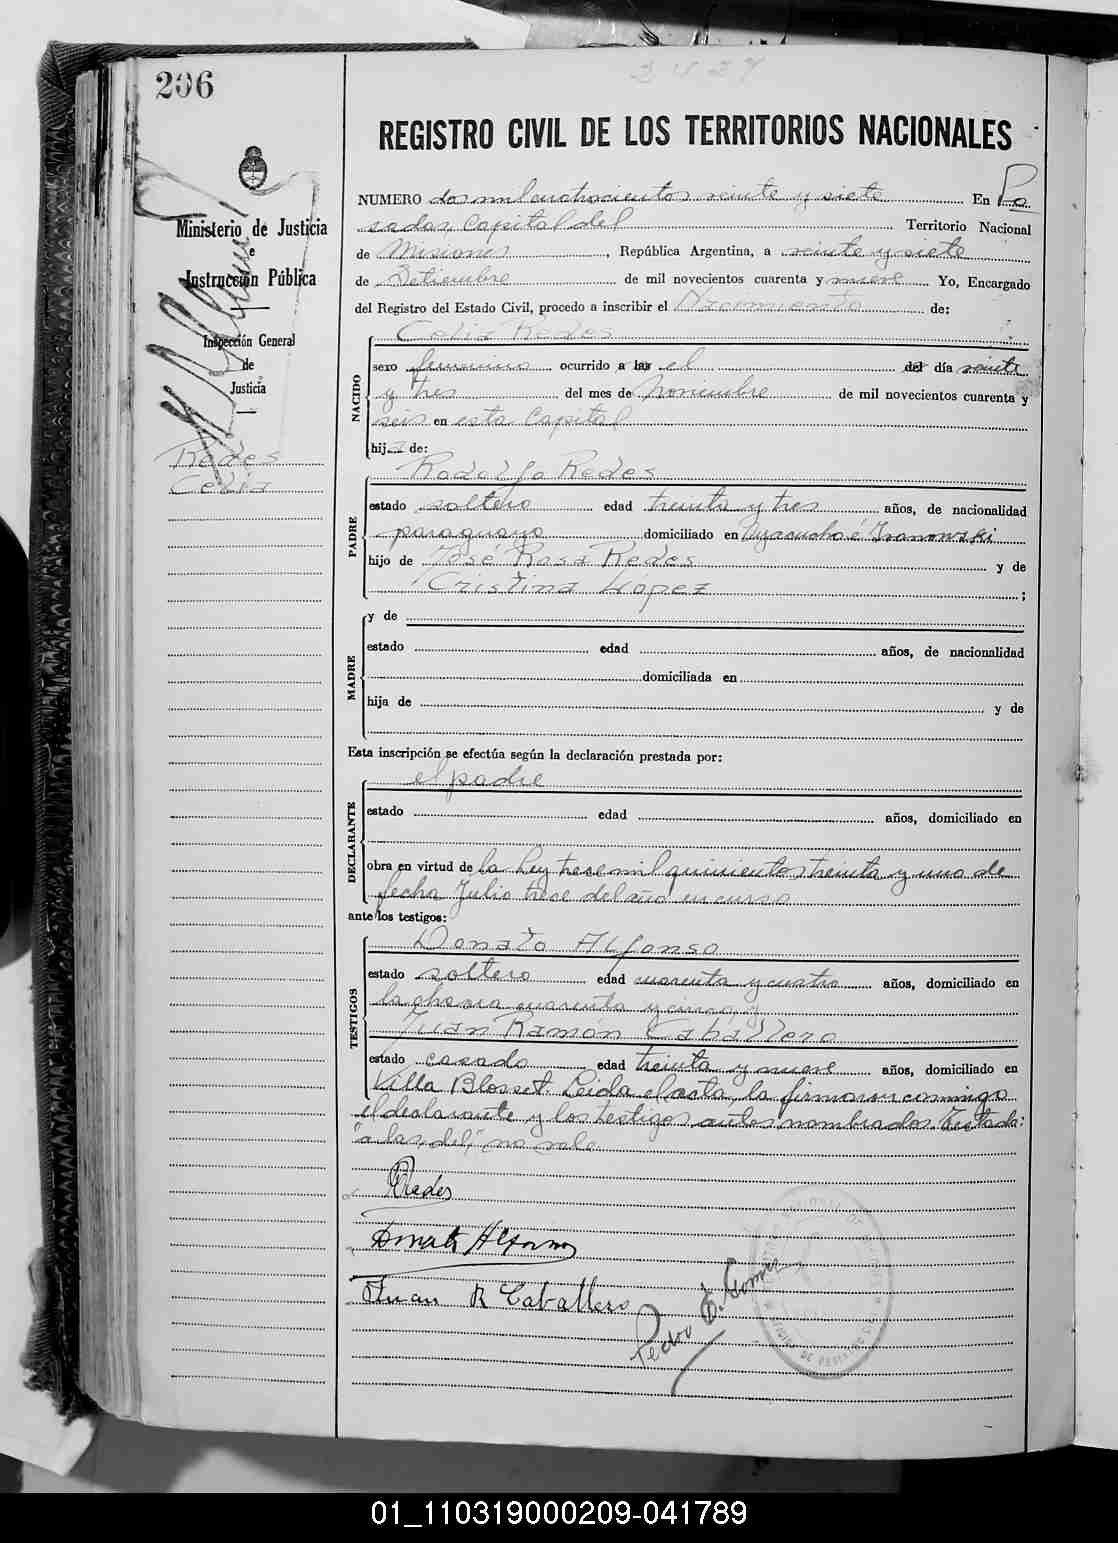 206
2427
REGISTRO CIVIL DE LOS TERRITORIOS NACIONALES
Ministerio de Justicia
e
Instrucción Pública
Inspección General
de
Justicia
Redes
Celia
NUMERO dos mil cuatrocientos veinte y siete En Po
sadas, Capital del Territorio Nacional
de Misiones, República Argentina, a veinte y siete
de Setiembre de mil novecientos cuarenta y nueve Yo, Encargado
del Registro del Estado Civil, procedo a inscribir el Nacimiento de:
NACIDO
Celia Redes
sexo femenino ocurrido a las el del día veinte
y tres del mes de Noviembre de mil novecientos cuarenta y
seis en esta Capital
hija de:
PADRE
Rodolfo Redes
estado soltero edad treinta y tres años, de nacionalidad
paraguayo domiciliado en Ayacucho é Ivanowski
hijo de José Rosa Redes y de
Cristina López ;
MADRE
y de
estado edad años, de nacionalidad
domiciliada en
hija de y de
Esta inscripción se efectúa según la declaración prestada por:
DECLARANTE
el padre
estado edad años, domiciliado en
obra en virtud de la Ley trece mil quinientos treinta y uno de
fecha Julio trece del año en curso
ante los testigos:
TESTIGOS
Donato Alfonso
estado soltero edad cuarenta y cuatro años, domiciliado en
la chacra cuarenta y cinco, y
Juan Ramon Caballero
estado casado edad treinta y nueve años, domiciliado en
Villa Blosset. Leida el acta, la firmaron conmigo
el declarante y los testigos antes nombrados. Testado:
"a las, del," no vale
Redes
Donato Alfonso
Juan R Caballero
Pedro E. Gomez
01_110319000209-041789